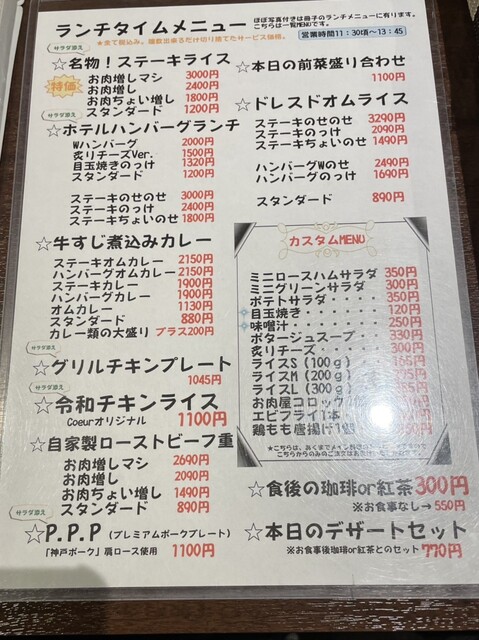 ランチタイムメニュー
ほぼ写真付きは冊子のランチメニューに有ります。
こちらは一覧MENUです。
★全て税込み。
営業時間11:30頃~13:45
サラダ添え
☆名物!ステーキライス
特価
お肉増しマシ 3000円
お肉増し 2400円
お肉ちょい増し 1800円
スタンダード 1200円
サラダ添え
☆ホテルハンバーグランチ
Wハンバーグ 2000円
炙りチーズVer. 1500円
目玉焼きのっけ 1320円
スタンダード 1200円
ステーキのせのせ 3000円
ステーキのっけ 2400円
ステーキちょいのせ 1800円
☆牛すじ煮込みカレー
ステーキオムカレー 2150円
ハンバーグオムカレー 2150円
ステーキカレー 1900円
ハンバーグカレー 1900円
オムカレー 1130円
スタンダード 880円
カレー類の大盛り プラス200円
サラダ添え
☆グリルチキンプレート
1045円
サラダ添え
☆令和チキンライス
Coeurオリジナル 1100円
☆自家製ローストビーフ重
お肉増しマシ 2690円
お肉増し 2090円
お肉ちょい増し 1490円
スタンダード 890円
サラダ添え
☆P.P.P (プレミアムポークプレート)
「神戸ポーク」肩ロース使用 1100円
☆本日の前菜盛り合わせ
1100円
☆ドレスドオムライス
ステーキのせのせ 3290円
ステーキのっけ 2090円
ステーキちょいのせ 1490円
ハンバーグWのせ 2490円
ハンバーグのっけ 1690円
スタンダード 890円
カスタムMENU
ミニロースハムサラダ 350円
ミニグリーンサラダ 300円
ポテトサラダ・・・・・ 350円
目玉焼き・・・・・・・ 120円
味噌汁・・・・・・・・ 250円
ポタージュスープ・・・ 330円
炙りチーズ・・・・・・ 300円
ライスS(100g)
ライスM(200g)
ライスL(300g)
お肉屋コロッケ
エビフライ1本
鶏もも唐揚げ1個
☆食後の珈琲or紅茶 300円
※お食事なし→550円
☆本日のデザートセット
※お食事後珈琲or紅茶とのセット 770円